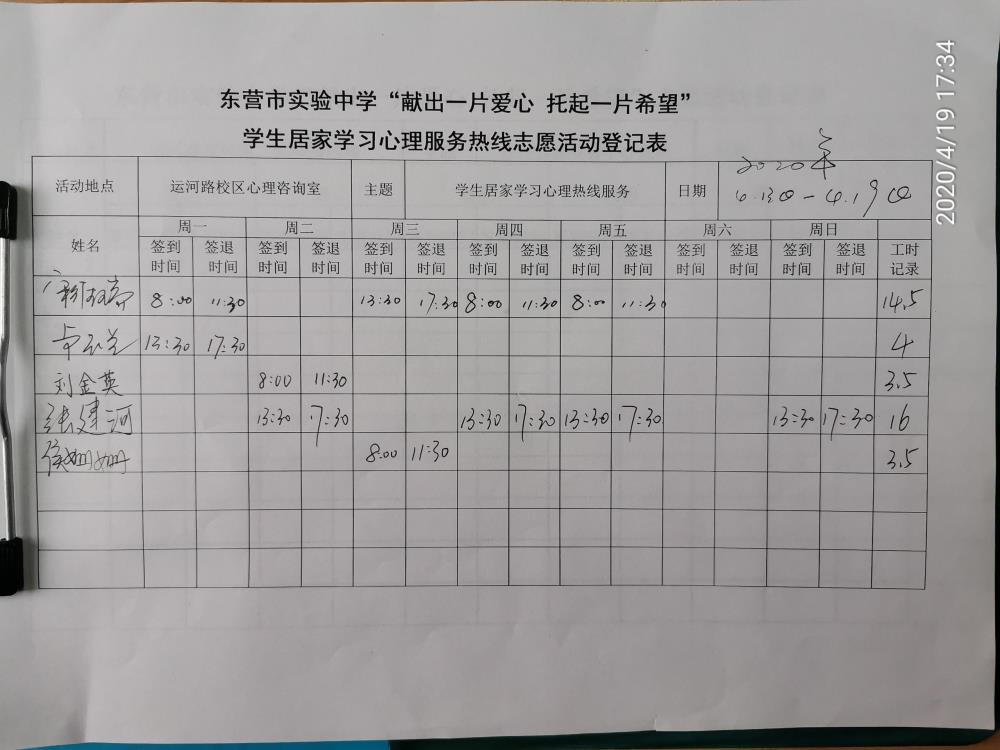 2020/4/19 17:34
东营市实验中学“献出一片爱心 托起一片希望”
学生居家学习心理服务热线志愿活动登记表
活动地点 运河路校区心理咨询室 主题 学生居家学习心理热线服务 日期 2020年 4.13日-4.19日
姓名 周一 周二 周三 周四 周五 周六 周日
签到时间 签退时间 签到时间 签退时间 签到时间 签退时间 签到时间 签退时间 签到时间 签退时间 签到时间 签退时间 签到时间 签退时间 工时记录
8:00 11:30 13:30 17:30 8:00 11:30 8:00 11:30 14.5
13:30 17:30 4
刘金英 8:00 11:30 3.5
张建河 13:30 17:30 13:30 17:30 13:30 17:30 13:30 17:30 16
侯姗姗 8:00 11:30 3.5